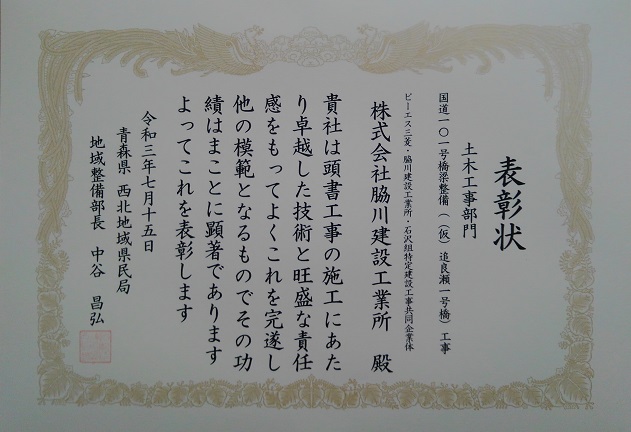 表彰状
土木工事部門
国道一〇一号橋梁整備((仮)追良瀬一号橋)工事
ピーエス三菱・脇川建設工業所・石沢組特定建設工事共同企業体
株式会社脇川建設工業所 殿
貴社は頭書工事の施工にあた
り卓越した技術と旺盛な責任
感をもってよくこれを完遂し
他の模範となるものでその功
績はまことに顕著であります
よってこれを表彰します
令和三年七月十五日
青森県 西北地域県民局
地域整備部長 中谷 昌弘